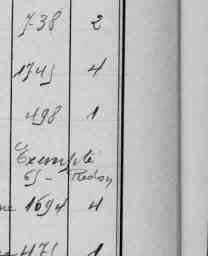 7-38 2
1745 4
498 1
Exempté
65 - Redon
1694 4
475 1